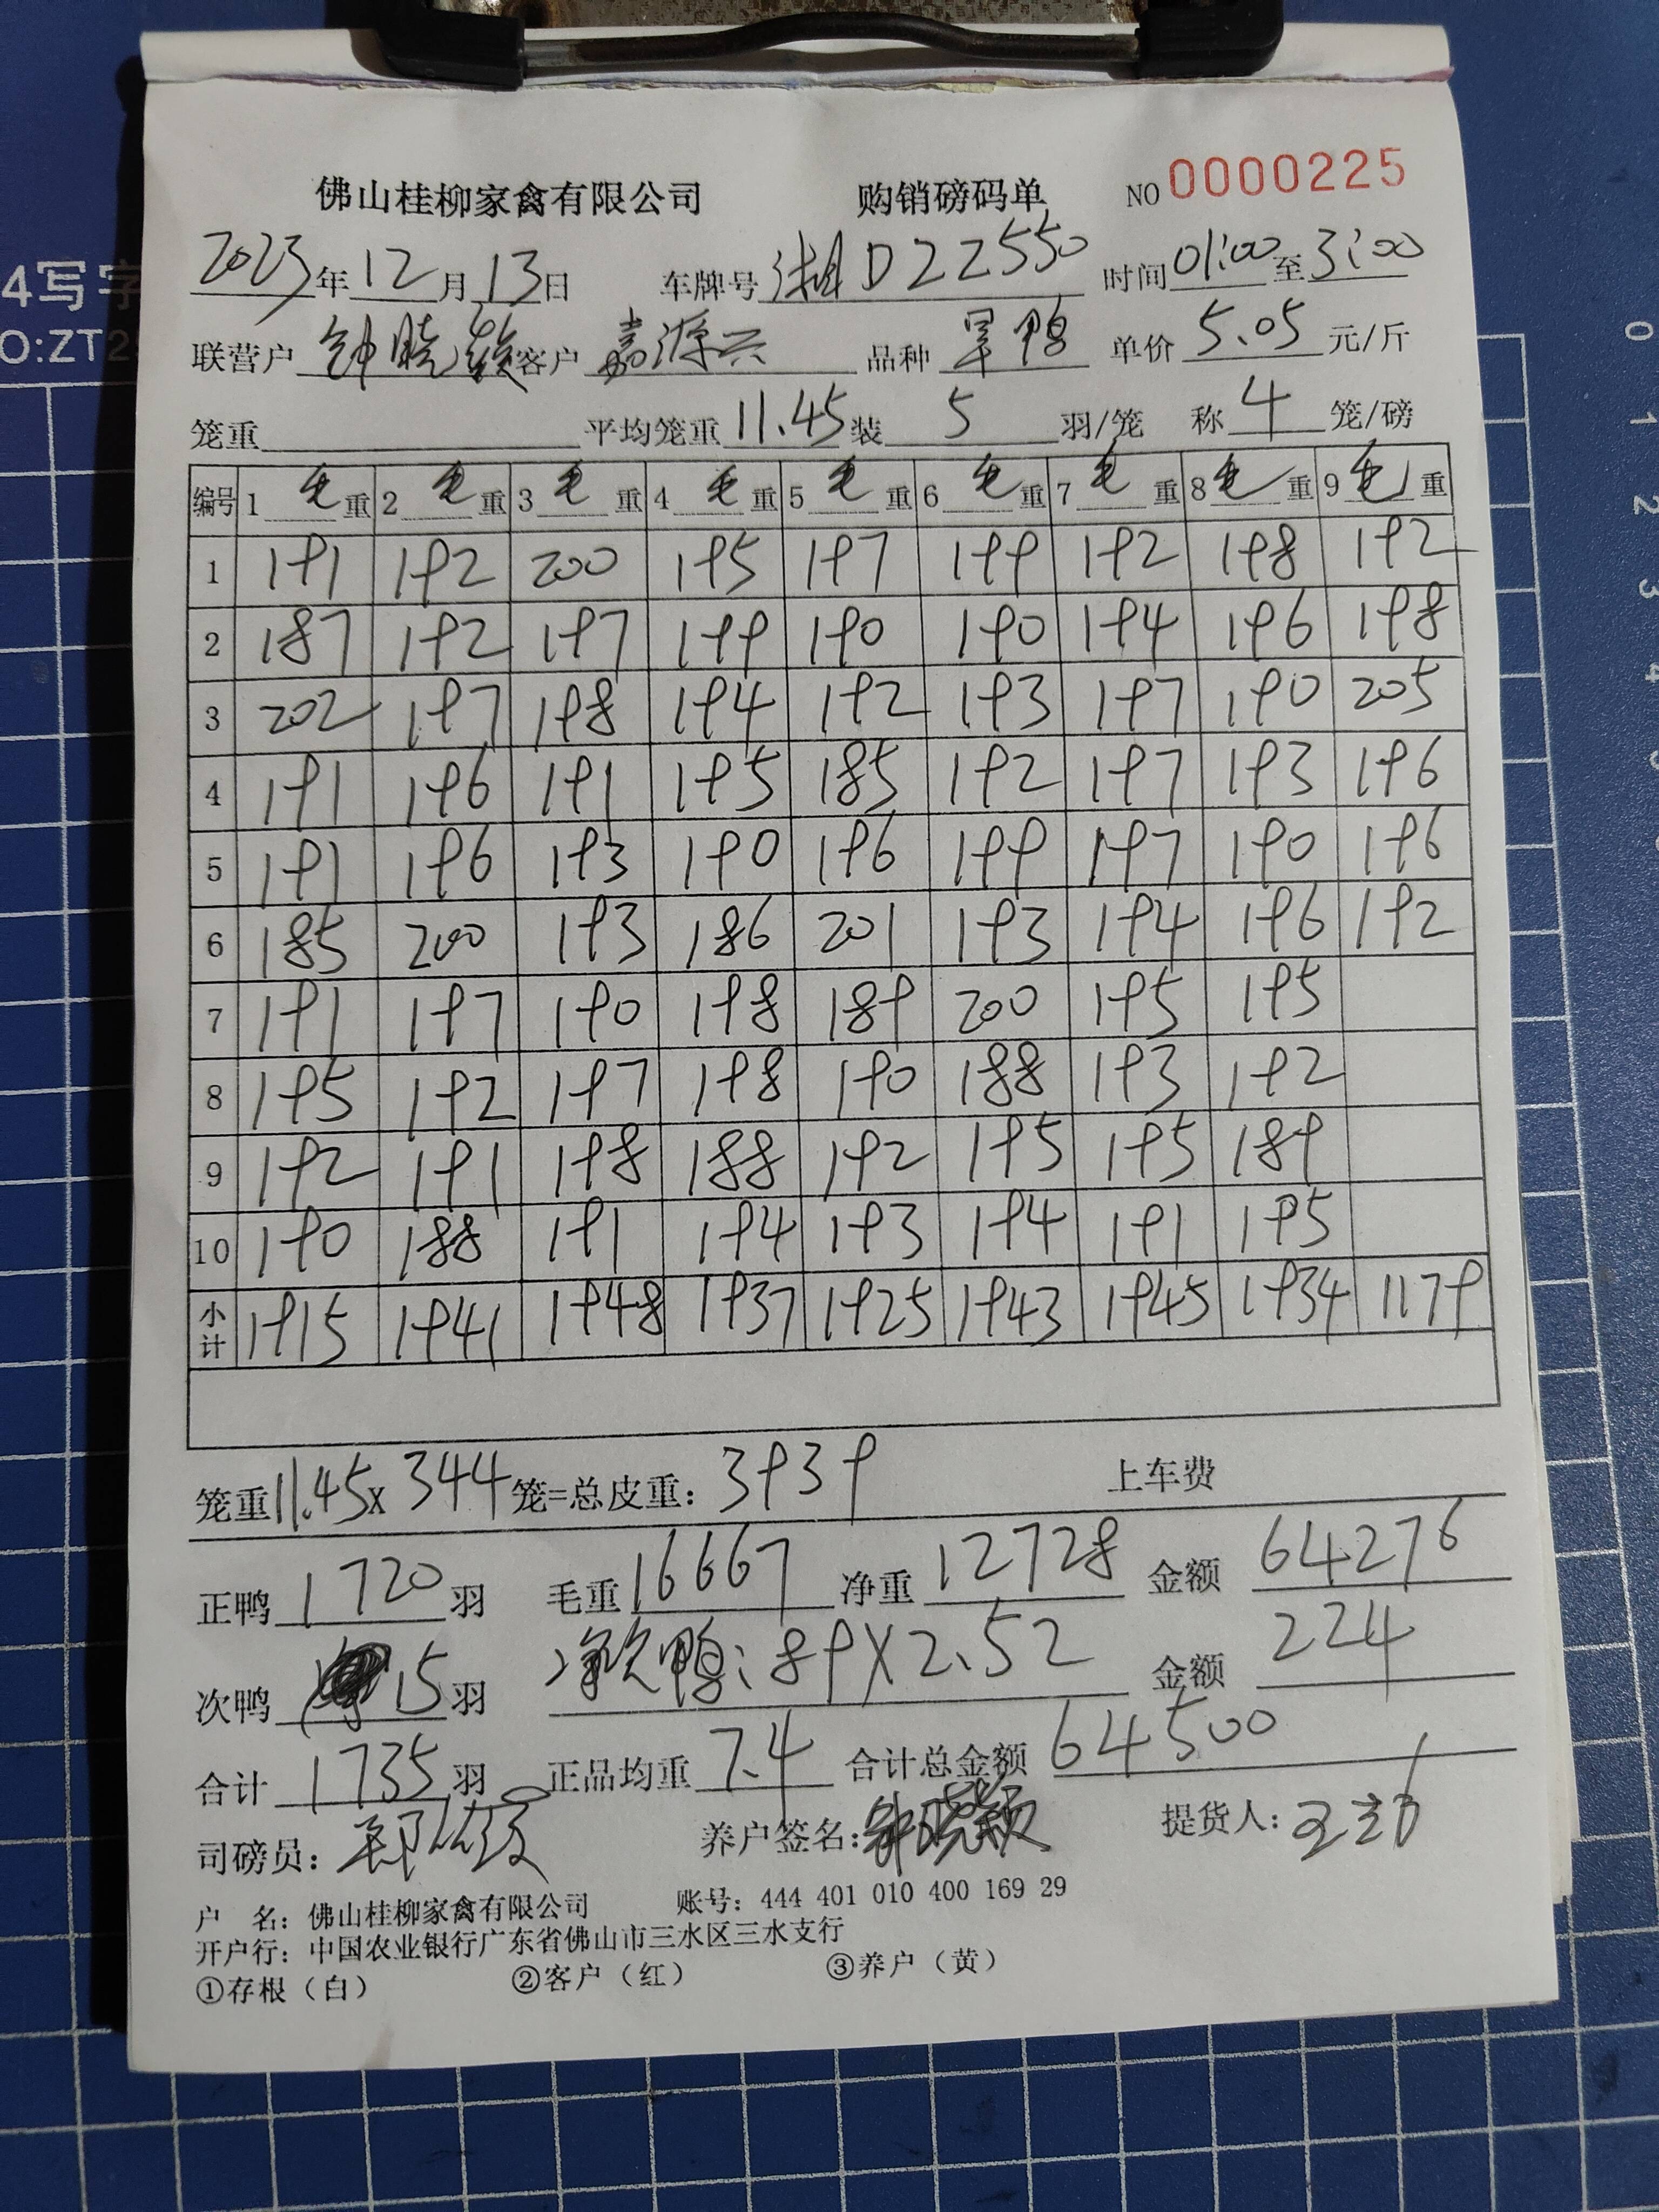 佛山桂柳家禽有限公司 购销磅码单 NO 0000225
2023年12月13日 车牌号 湘D22550 时间 01:00至3:00
联营户 钟晓颖 客户 嘉源兴 品种 旱鸭 单价 5.05 元/斤
笼重 平均笼重 11.45 装 5 羽/笼 称 4 笼/磅
编号 1 毛重 2 毛重 3 毛重 4 毛重 5 毛重 6 毛重 7 毛重 8 毛重 9 毛重
1 191 192 200 195 197 199 192 198 192
2 187 192 197 199 190 190 194 196 198
3 202 197 198 194 192 193 197 190 205
4 191 196 191 195 185 192 197 193 196
5 191 196 193 190 196 199 197 190 196
6 185 200 193 186 201 193 194 196 192
7 191 197 190 198 189 200 195 195
8 195 192 197 198 190 188 193 192
9 192 191 198 188 192 195 195 189
10 190 188 191 194 193 194 191 195
小计 1915 1941 1948 1937 1925 1943 1945 1934 1179
笼重 11.45 x 344 笼=总皮重: 3939 上车费
正鸭 1720 羽 毛重 16667 净重 12728 金额 64276
次鸭 15 羽 净次鸭: 89X2.52 金额 224
合计 1735 羽 正品均重 7.4 合计总金额 64500
司磅员: 养户签名: 钟晓颖 提货人:
户 名: 佛山桂柳家禽有限公司 账号: 444 401 010 400 169 29
开户行: 中国农业银行广东省佛山市三水区三水支行
①存根（白） ②客户（红） ③养户（黄）
4写字
O:ZT2
0 1 2 3 4 5